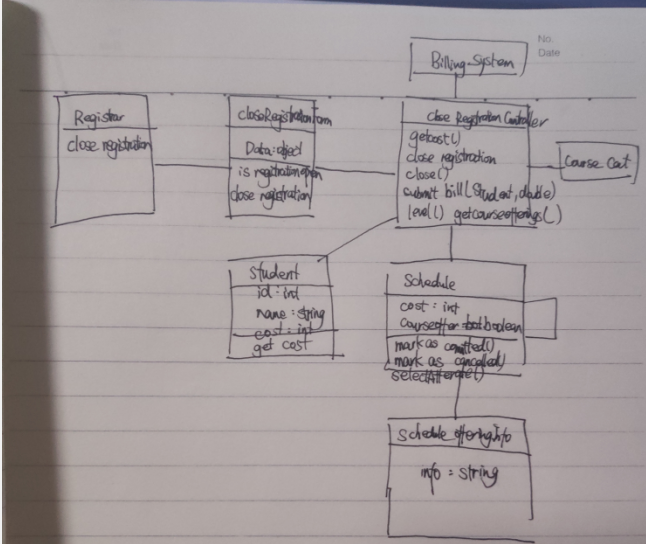 No.
Date
Billing System
Registrar
close registration
closeRegistrationForm
Data: object
is registration open
close registration
close Registration Controller
getcost()
close registration
close()
submit bill (Student, double)
level() getcourseofferings(.)
Course Cat
Student
id: int
name: string
cost: int
get cost
Schedule
cost: int
boolean
mark as
mark as cancelled()
Schedule offeringinfo
info = string